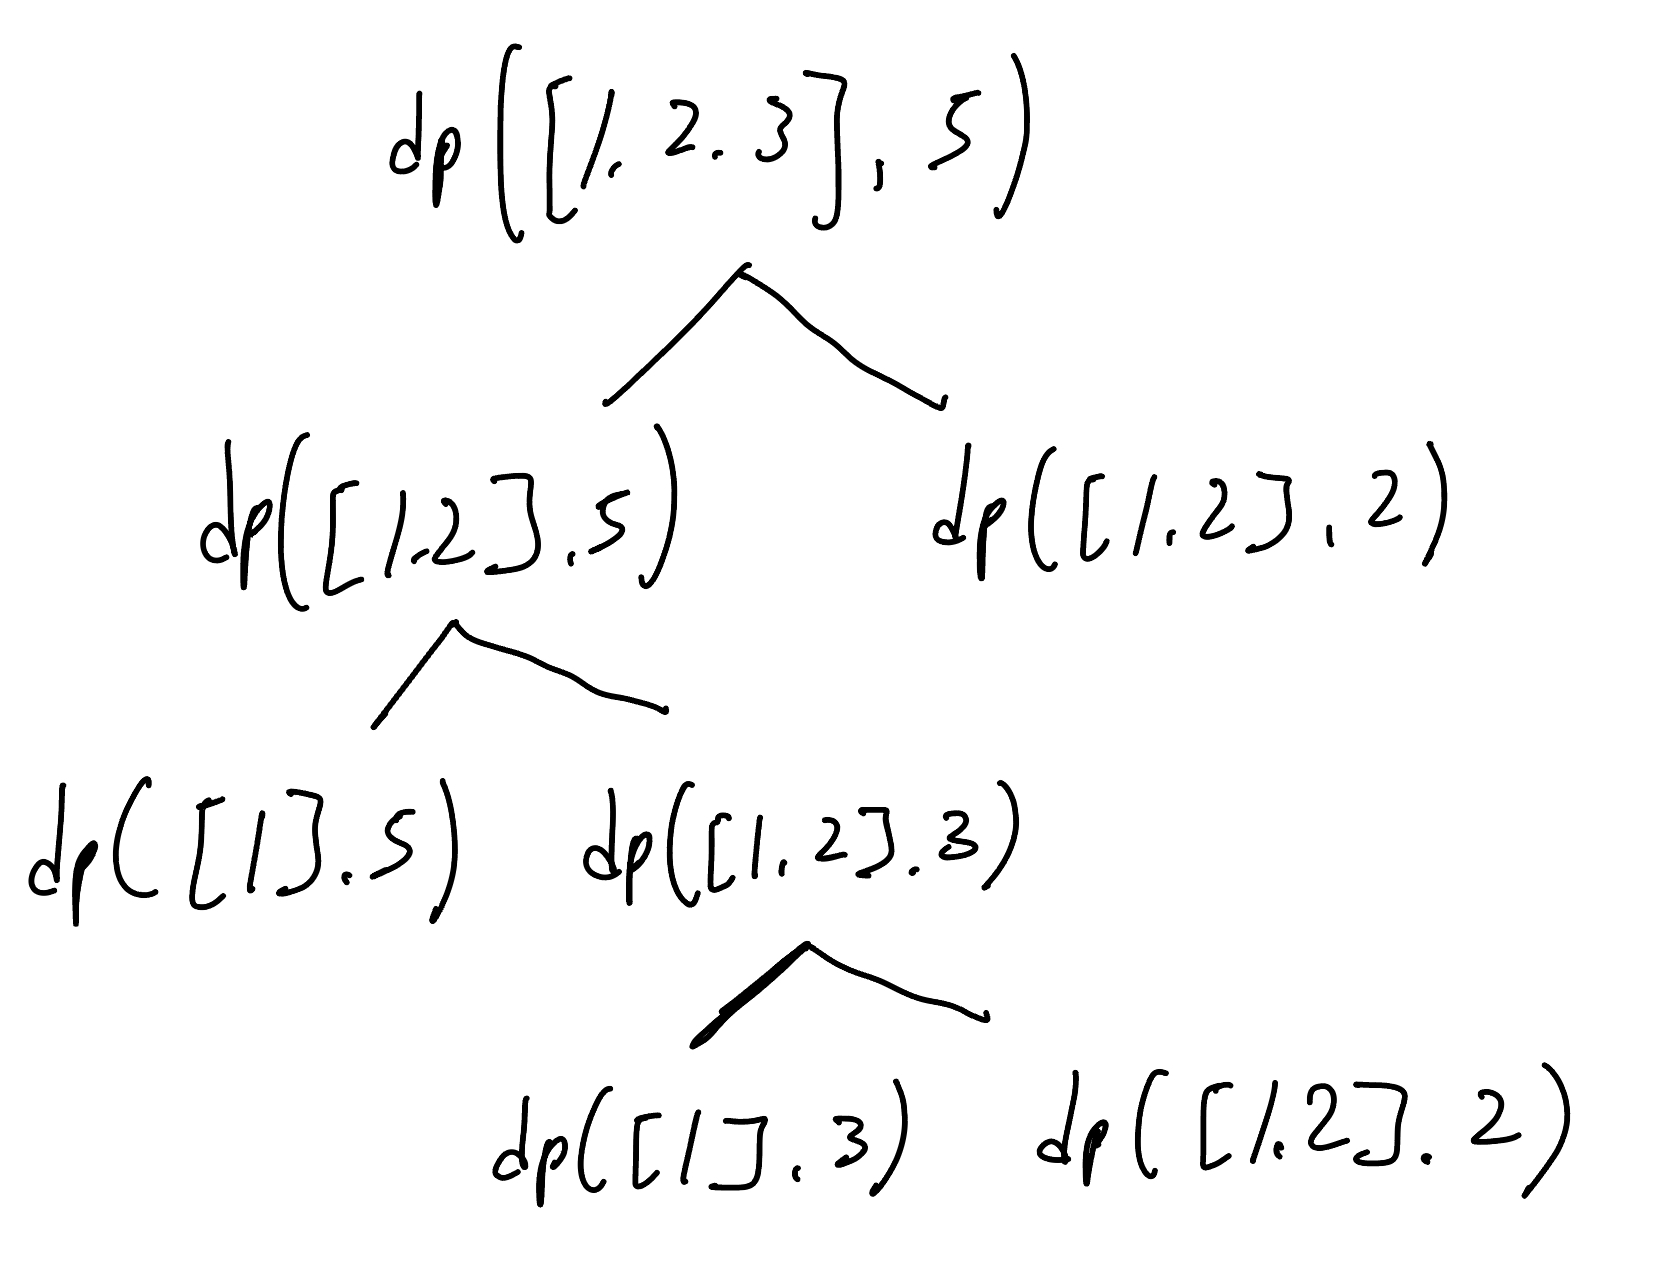 dp([1, 2, 3], 5)
dp([1,2],5) dp([1,2],2)
dp([1],5) dp([1,2],3)
dp([1],3) dp([1,2],2)